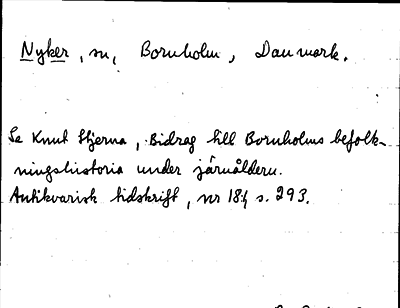 Nyker, sn, Bornholm, Danmark.
Se Knut Stjerna, Bidrag till Bornholms befolk-
ningshistoria under järnåldern.
Antikvarisk tidskrift, nr 18:1 s. 293.